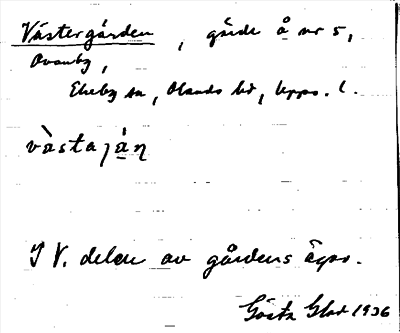 Västergården, gärde å nr 5,
Ovanby,
Ekeby sn, Olands hd, Upps. l.
vàstaján
I V. delen av gårdens ägor.
Gösta Glad 1936